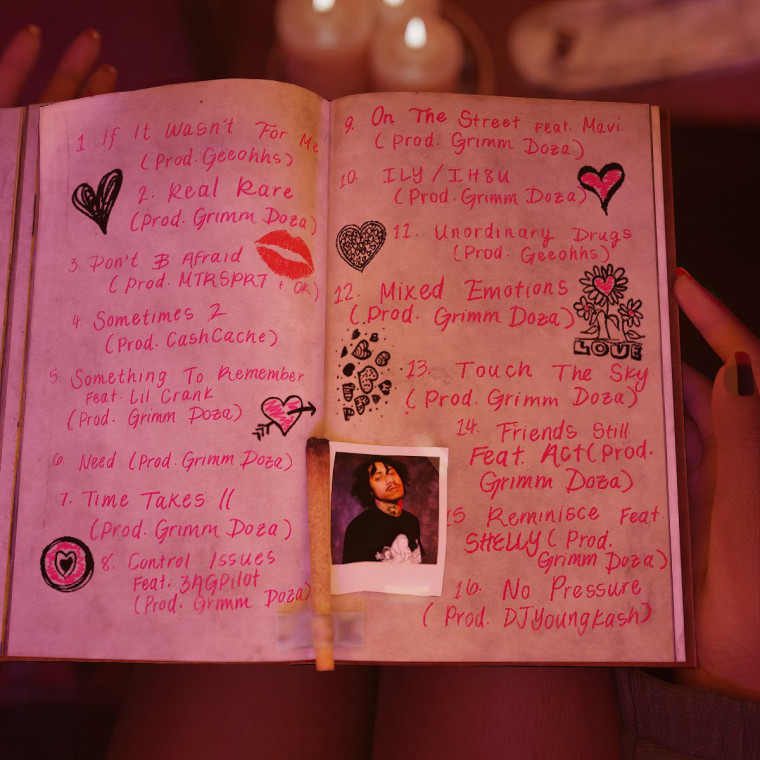 1. If It Wasn't For Me
(Prod. Geeohhs)
2. Real Rare
(Prod. Grimm Doza)
3. Don't B Afraid
(Prod. MTRSPRT + OK)
4. Sometimes 2
(Prod. CashCache)
5. Something To Remember
Feat. Lil Crank
(Prod. Grimm Doza)
6. Need (Prod. Grimm Doza)
7. Time Takes II
(Prod. Grimm Doza)
8. Control Issues
Feat. 3AGPilot
(Prod. Grimm Doza)
9. On The Street Feat. Mavi
(Prod. Grimm Doza)
10. ILY/IH8U
(Prod. Grimm Doza)
11. Unordinary Drugs
(Prod. Geeohhs)
12. Mixed Emotions
(Prod. Grimm Doza)
LOVE
13. Touch The Sky
(Prod. Grimm Doza)
14. Friends Still
Feat. Act (Prod.
Grimm Doza)
15 Reminisce Feat.
SHELLY (Prod.
Grimm Doza)
16. No Pressure
(Prod. DJYoungKash)